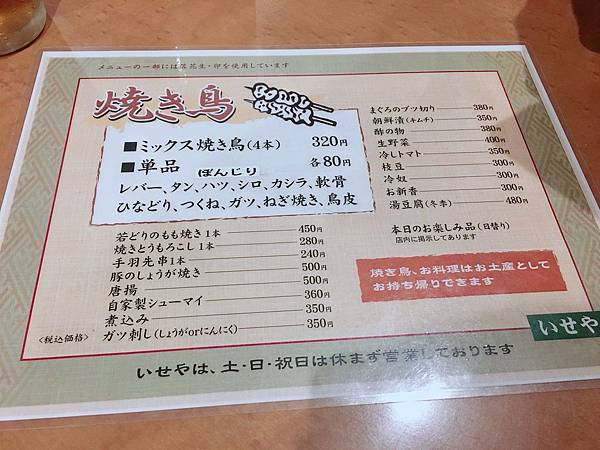 メニューの一部には落花生・卵を使用しています
焼き鳥
■ミックス焼き鳥(4本) 320円
■単品 ぼんじり 各80円
レバー、タン、ハツ、シロ、カシラ、軟骨
ひなどり、つくね、ガツ、ねぎ焼き、鳥皮
若どりのもも焼き1本 450円
焼きとうもろこし1本 280円
手羽先串1本 240円
豚のしょうが焼き 500円
唐揚 500円
自家製シューマイ 360円
煮込み 350円
ガツ刺し(しょうがorにんにく) 350円
<税込価格>
まぐろのブツ切り 380円
朝鮮漬(キムチ) 350円
酢の物 380円
生野菜 400円
冷しトマト 350円
枝豆 300円
冷奴 300円
お新香 300円
湯豆腐(冬季) 480円
本日のお楽しみ品(日替り)
店内に掲示してあります
焼き鳥、お料理はお土産として
お持ち帰りできます
いせや
いせやは、土・日・祝日は休まず営業しております